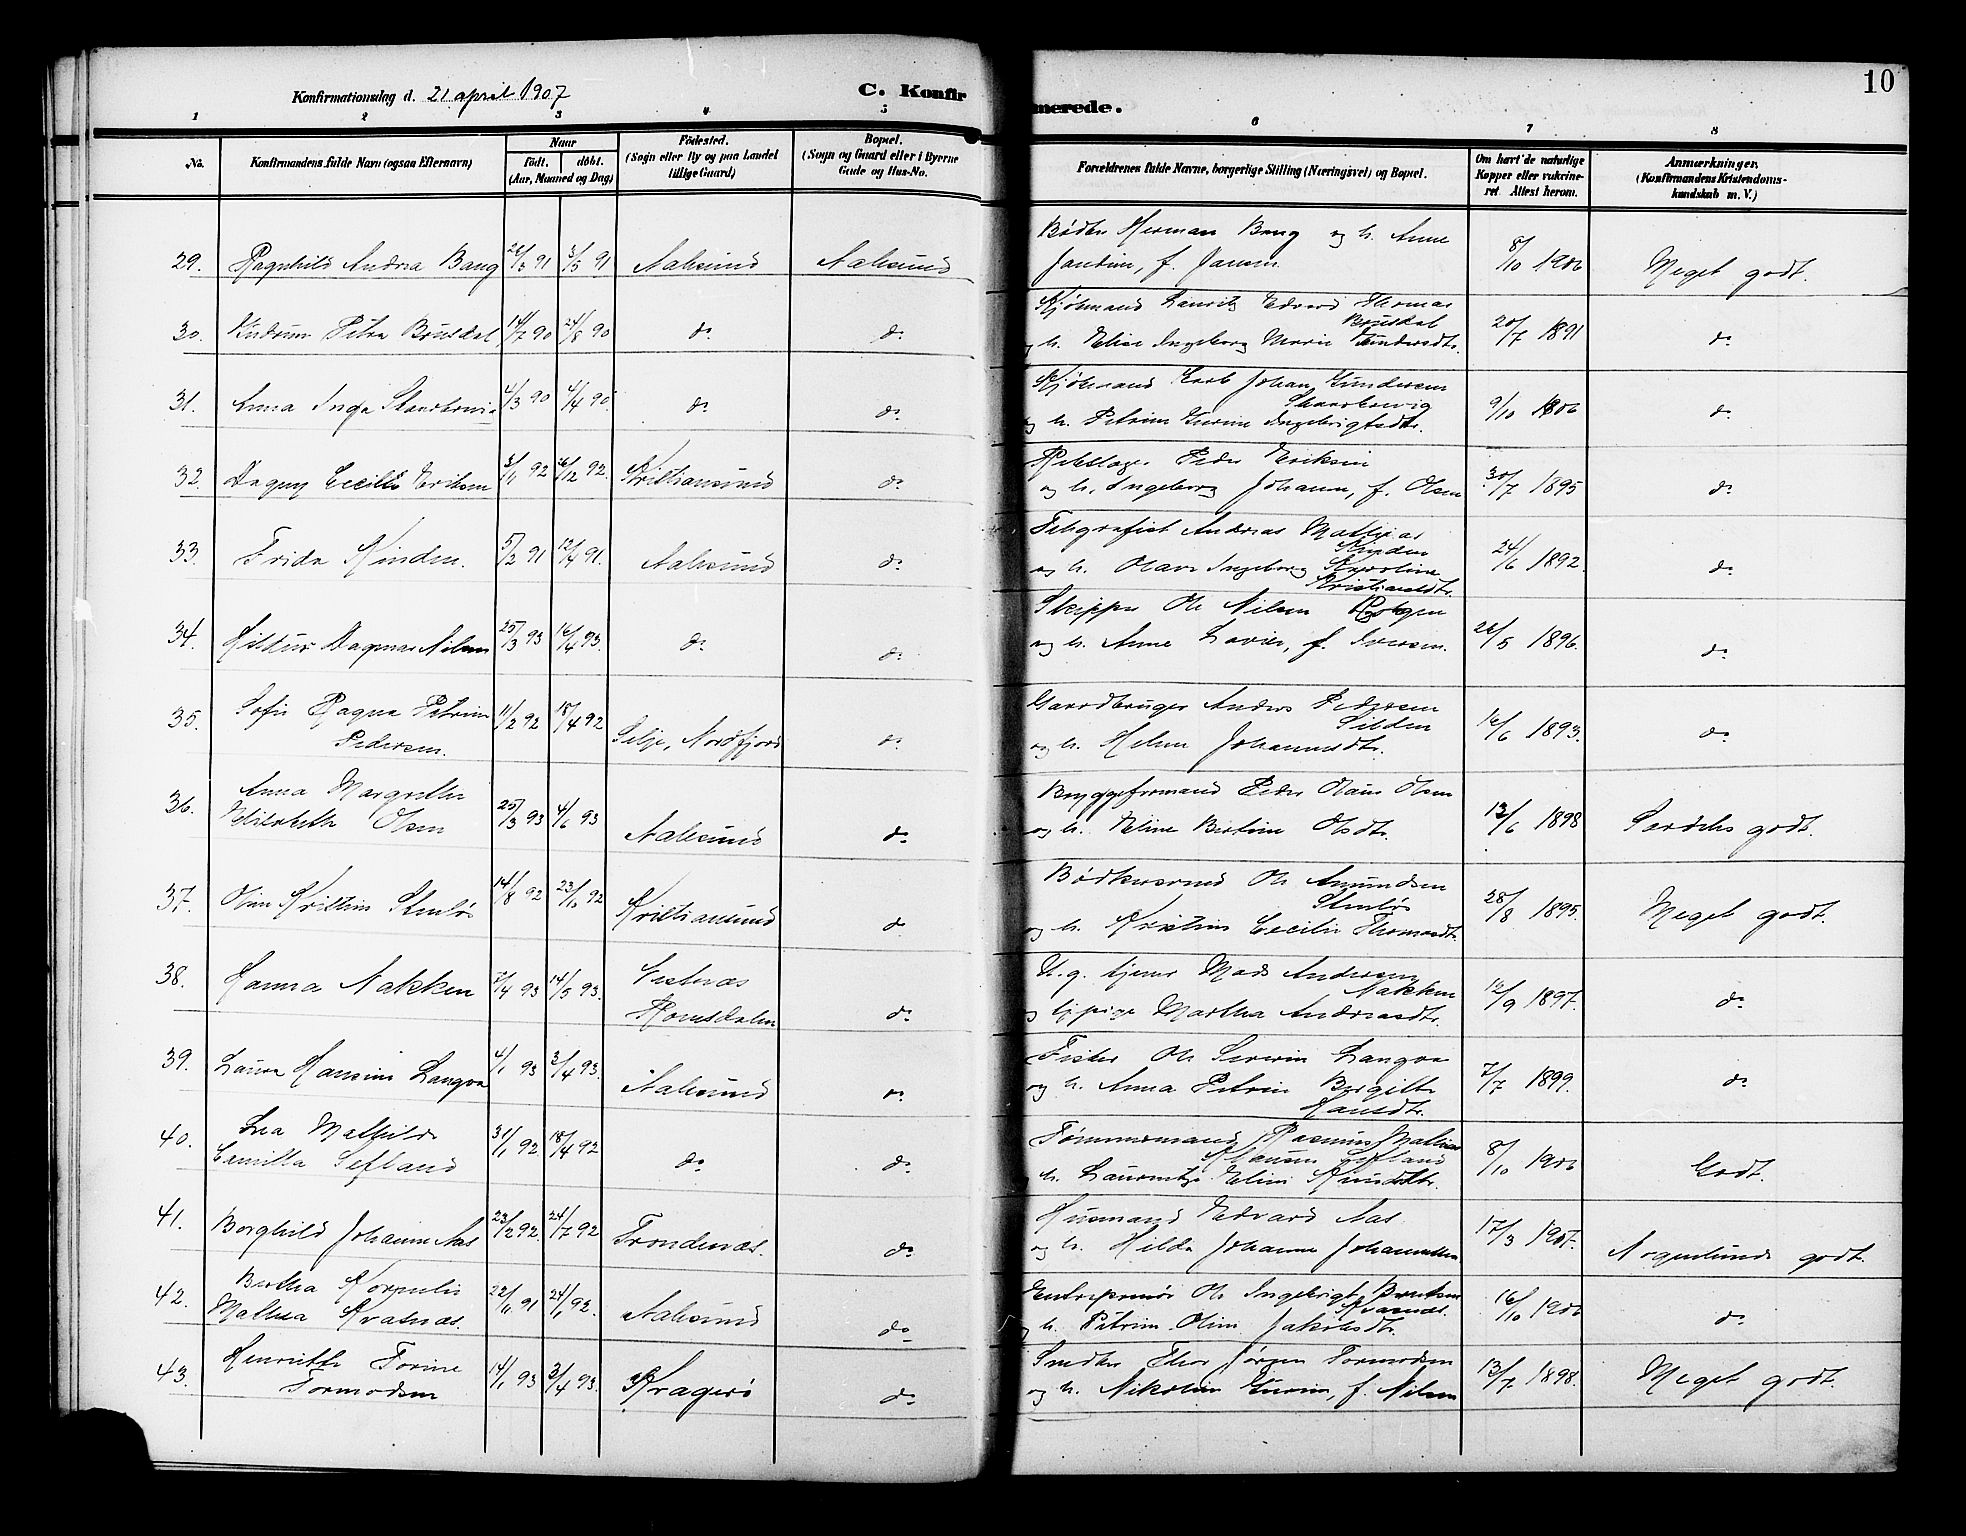 Konfirmationsdag d. 21 april 1907
C. Konfirmerede.
10
1 2 3 4 5 6 7 8
No.
Konfirmandens fulde Navn (ogsaa Efternavn)
Naar
født. døbt.
(Aar, Maaned og Dag)
Fødested.
(Sogn eller By og paa Landet
tillige Gaard)
Bopæl.
(Sogn og Gaard eller i Byerne
Gade og Hus-No.
Forældrenes fulde Navne, borgerlige Stilling (Næringsvei) og Bopæl.
Om havt de naturlige
Kopper eller vakcine-
ret Attest herom.
Anmærkninger.
(Konfirmandens Kristendoms-
kundskab m. V.)
Bødker Herman Bang og h. Anne
29. Ragnhild Andrea Bang 26/3 91 3/5 91 Aalesund Aalesund Jandine, f. Jansen 8/10 1906 Meget godt.
Kjøbmand Lauritz Edvard Thomas
Brusdal
30. Gudrun Petra Brusdal 14/7 90 24/8 90 do do og h. Eline Ingeborg Marie Gundersdtr. 20/7 1891 do
Kjøbmand Karl Johan Gundersen
Skarbøvig
31. Anna Inga Skarbøvig 4/3 90 4/4 90. do do og h. Petrine Gurine Ingebrigtsdtr. 9/10 1806 do
Rebslager Peder Eriksen
32. Dagny Cecilie Eriksen 5/1 92 26/12 92. Kristiansund do og h. Ingeborg Johanne, f. Olsen 30/7 1895 do
Telegrafist Andreas Mathias
Kinden
33. Frida Kinden. 5/2 91 12/4 91. Aalesund do og h. Olave Ingeborg Karoline 24/6 1892. do
Kristiansdtr.
Skipper Ole Nilsen
34. Hildur Dagmar Nilsen 25/3 93 16/4 93. do do og h. Anne Lovise, f. Iversen. 26/5 1896. do
35. Sofie Ragna Petrine 11/2 92 18/4 92 Selje, Nordfjord do Gaardbruger Anders Pedersen 16/6 1893. do
Pedersen. Silden
og h. Helene Johannesdtr.
36. Anna Margrethe Bryggeformand Peder Olaus Olsen
Elisabeth Olsen 25/3 93 4/6 93 Aalesund do og h. Eline Bertine Olsdtr. 13/6 1898 Særdeles godt.
Bødkersvend Ole Amundsen
Stenløs
37. Oline Kristine Stenløs 14/8 92 23/10 92 Kristiansund do og h. Kristine Cecilie Thomasdtr. 28/8 1895. Meget godt.
U. g. tjener Mads Andersen
Nakken
38. Hanna Nakken 7/4 93 14/5 93. Vestnæs
Romsdalen do og tj. pige Martha Andreasdtr. 16/9 1897. do
Fisker Ole Severin Langva
39. Laura Hansine Langva 4/1 93 3/4 93. Aalesund do og h. Anna Petrine Bergitte 7/7 1899. do
Hansdtr.
40. Lea Mathilde 31/1 92 18/4 92 do do Tømmermand Rasmus Mathias 8/10 1906 Godt.
Camilla Sefland Sefland
h. Laurentze Eline Knudsdtr.
Husmand Edvard Aas.
41. Borghild Johanne Aas 23/2 92. 24/7 92 Trondenæs. do og h. Hilda Johanne Johannesen 17/3 1907. Nogenlunde godt.
42. Bertha Kornelie 22/11 91 24/1 92. Aalesund do Entreprenør Ole Ingebrigt Berntsen 16/10 1906 do
Mathea Kvasnæs. Kvasnæs.
h. Petrine Oline Jakobsdtr.
43. Henriette Torine 14/1 93 3/4 93. Kragerø do Smed Thor Jørgen Tormodsen 13/7 1898. Meget godt.
Tormodsen og h. Nikoline Gurine, f. Nilsen